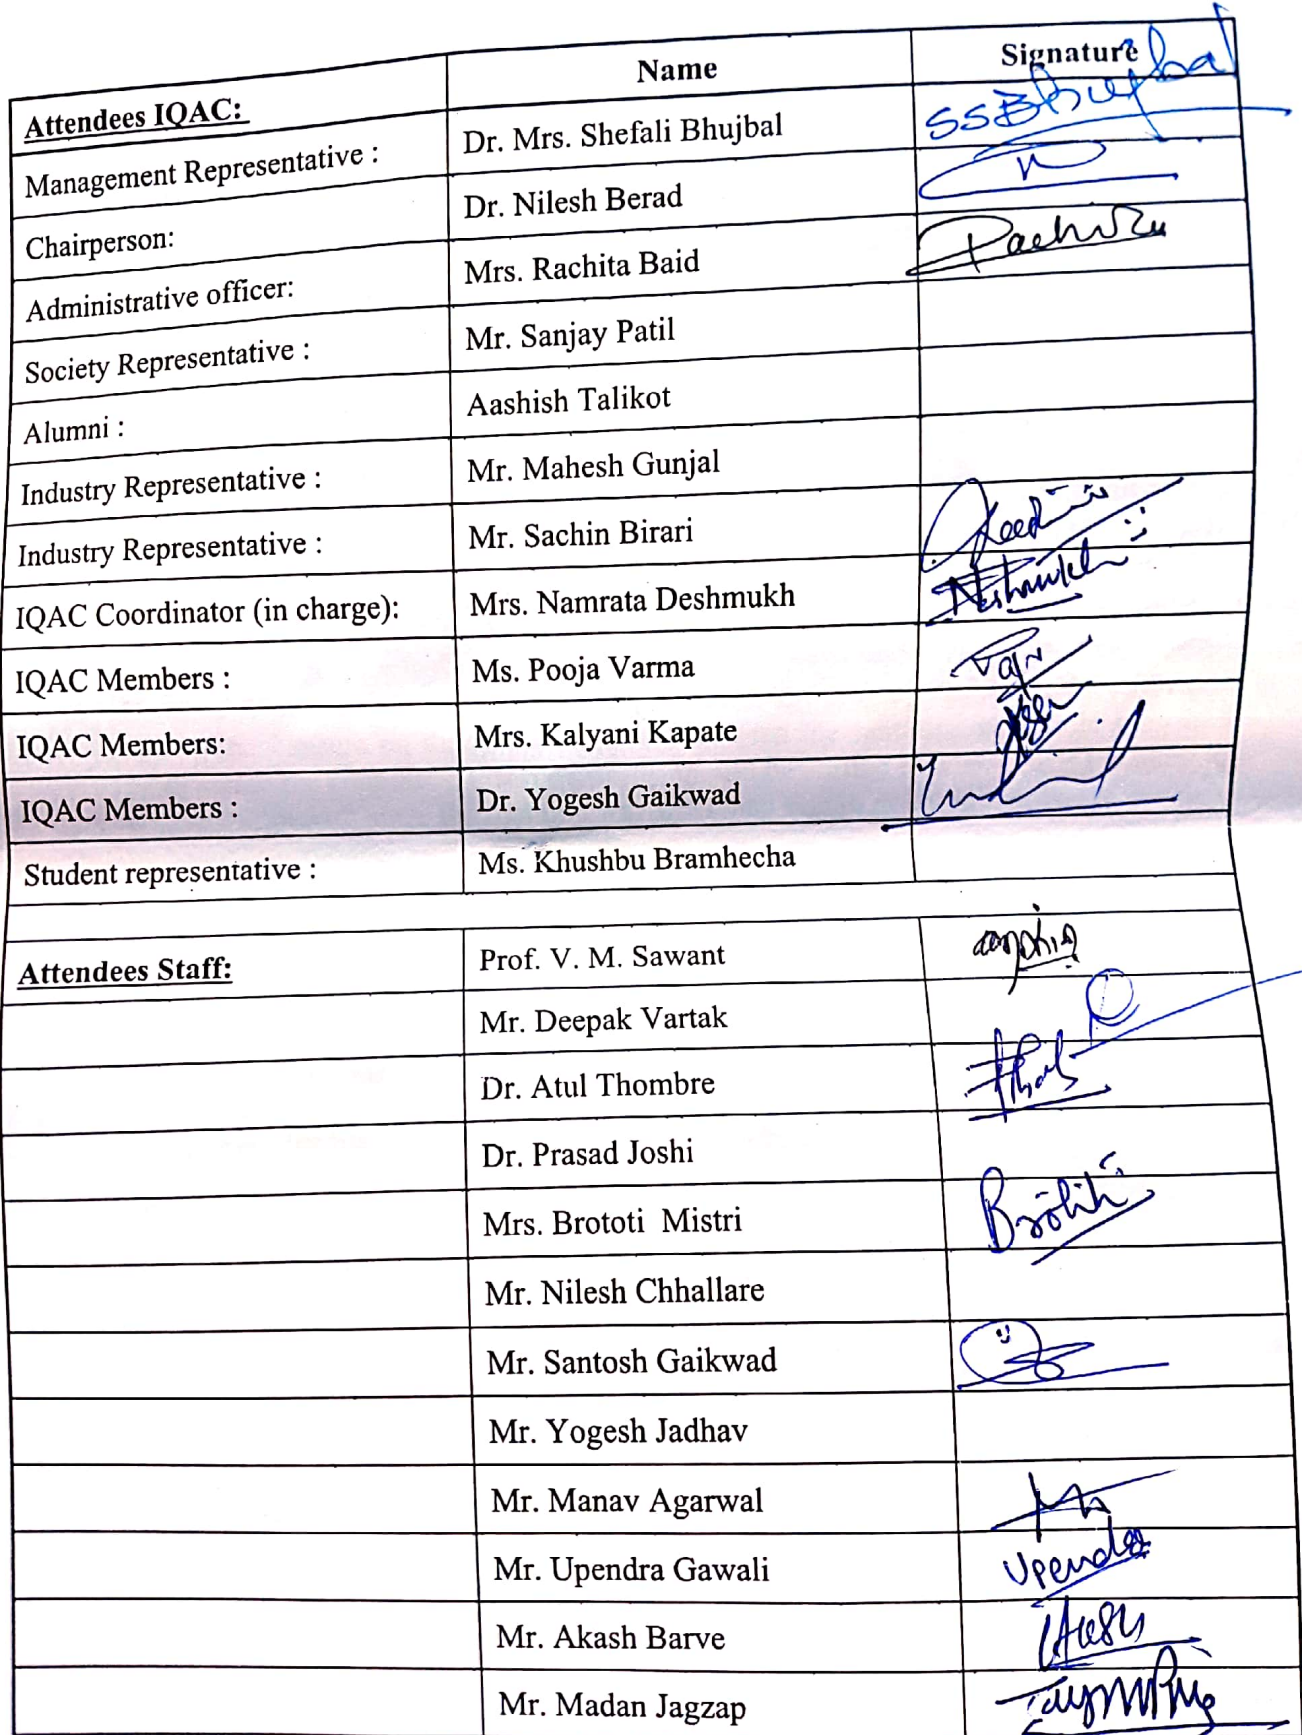 Name Signature
Attendees IQAC:
Management Representative : Dr. Mrs. Shefali Bhujbal SSBhujbal
Chairperson: Dr. Nilesh Berad
Administrative officer: Mrs. Rachita Baid
Society Representative : Mr. Sanjay Patil
Alumni : Aashish Talikot
Industry Representative : Mr. Mahesh Gunjal
Industry Representative : Mr. Sachin Birari
IQAC Coordinator (in charge): Mrs. Namrata Deshmukh
IQAC Members : Ms. Pooja Varma
IQAC Members: Mrs. Kalyani Kapate
IQAC Members : Dr. Yogesh Gaikwad
Student representative : Ms. Khushbu Bramhecha
Attendees Staff: Prof. V. M. Sawant
Mr. Deepak Vartak
Dr. Atul Thombre
Dr. Prasad Joshi
Mrs. Brototi Mistri
Mr. Nilesh Chhallare
Mr. Santosh Gaikwad
Mr. Yogesh Jadhav
Mr. Manav Agarwal
Mr. Upendra Gawali Upendra
Mr. Akash Barve
Mr. Madan Jagzap